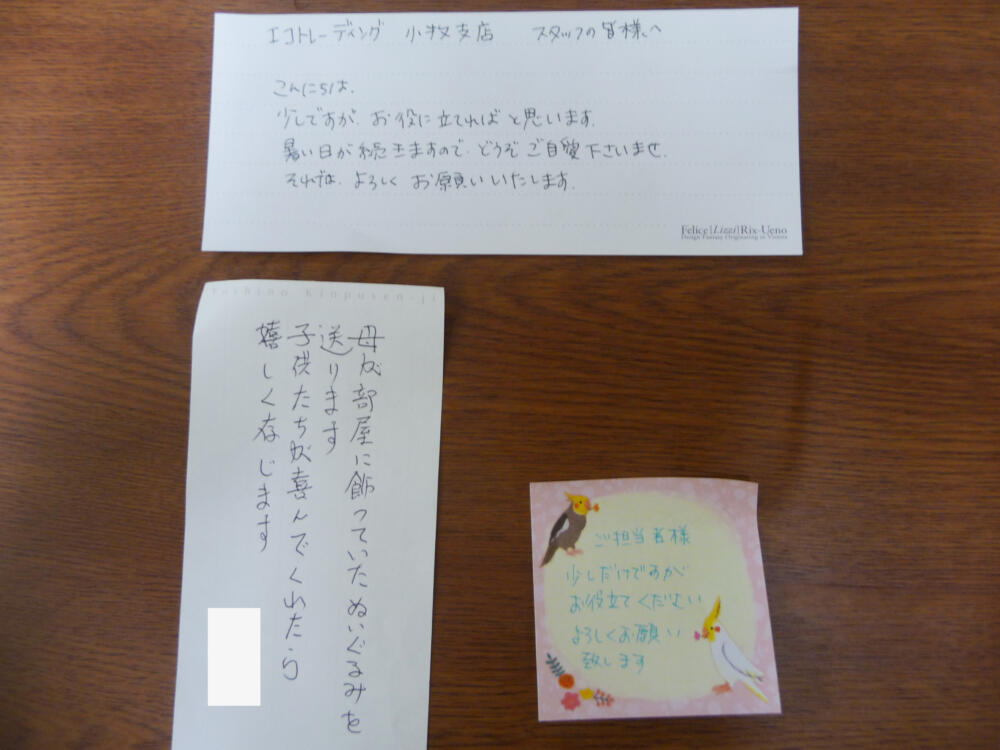 エコトレーディング 小牧支店 スタッフの皆様へ
こんにちは.
少しですが、お役に立てればと思います.
暑い日が続きますので、どうぞご自愛下さいませ.
それでは、よろしくお願いいたします.
Felice[Lizzi]Rix-Ueno
Design Fantasy Originating in Vienna
Yoshino Kinpusen-ji
母が部屋に飾っていたぬいぐるみを
送ります
子供たちが喜んでくれたら
嬉しく存じます
ご担当者様
少しだけですが
お役立てください
よろしくお願い
致します